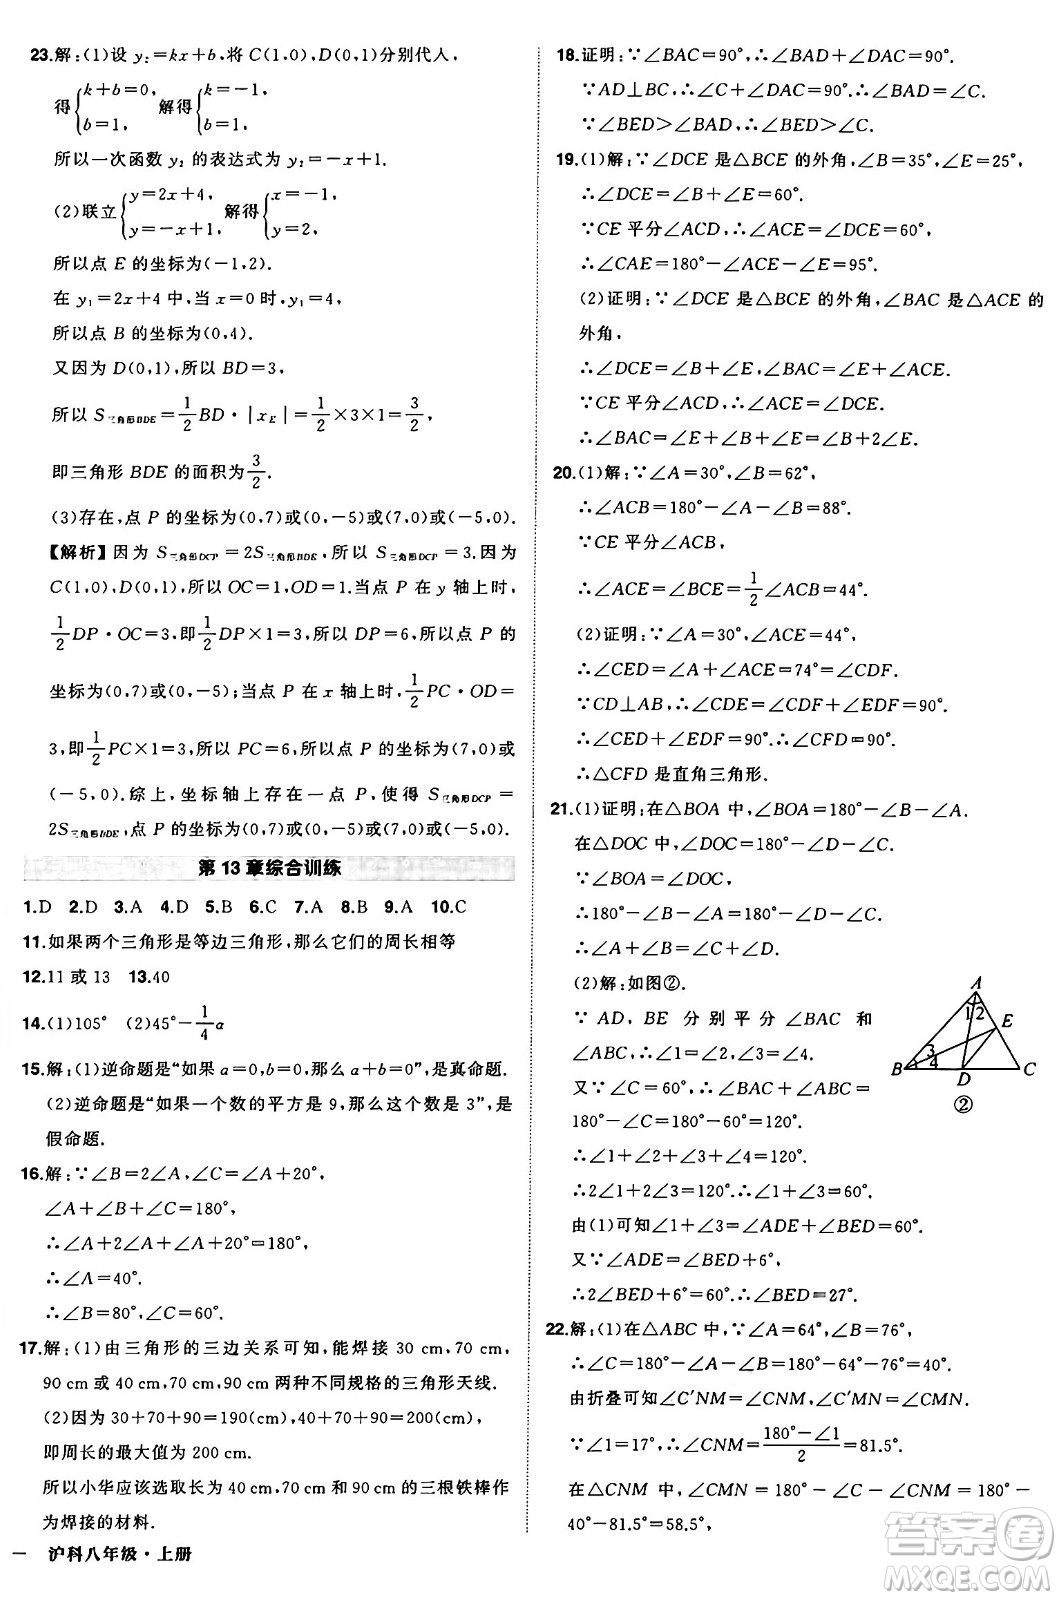 23.解:(1)设 y₂=kx+b,将 C(1,0),D(0,1)分别代人,
得{k+b=0, b=1, 解得{k=-1, b=1,
所以一次函数 y₂ 的表达式为 y=-x+1.
(2)联立{y=2x+4, y=-x+1, 解得{x=-1, y=2,
所以点 E 的坐标为(-1,2).
在 y₁=2x+4 中,当 x=0 时,y₁=4,
所以点 B 的坐标为(0,4).
又因为 D(0,1),所以 BD=3,
所以 S三角形BDE=1/2BD·|xE|=1/2×3×1=3/2,
即三角形 BDE 的面积为3/2.
(3)存在,点 P 的坐标为(0,7)或(0,-5)或(7,0)或(-5,0).
【解析】因为 S三角形DCP=2S三角形BDE,所以 S三角形DCP=3.因为
C(1,0),D(0,1),所以 OC=1,OD=1.当点 P 在 y 轴上时,
1/2DP·OC=3,即1/2DP×1=3,所以 DP=6,所以点 P 的
坐标为(0,7)或(0,-5);当点 P 在 x 轴上时,1/2PC·OD=
3,即1/2PC×1=3,所以 PC=6,所以点 P 的坐标为(7,0)或
(-5,0).综上,坐标轴上存在一点 P,使得 S三角形DCP=
2S三角形BDE,点 P 的坐标为(0,7)或(0,-5)或(7,0)或(-5,0).
第 13 章综合训练
1.D 2.D 3.A 4.D 5.B 6.C 7.A 8.B 9.A 10.C
11.如果两个三角形是等边三角形,那么它们的周长相等
12.11 或 13 13.40
14.(1)105° (2)45°-1/4α
15.解:(1)逆命题是“如果 a=0,b=0,那么 a+b=0”,是真命题.
(2)逆命题是“如果一个数的平方是 9,那么这个数是 3”,是
假命题.
16.解:∵∠B=2∠A,∠C=∠A+20°,
∠A+∠B+∠C=180°,
∴∠A+2∠A+∠A+20°=180°,
∴∠A=40°.
∴∠B=80°,∠C=60°.
17.解:(1)由三角形的三边关系可知,能焊接 30 cm,70 cm,
90 cm 或 40 cm,70 cm,90 cm 两种不同规格的三角形天线.
(2)因为 30+70+90=190(cm),40+70+90=200(cm),
即周长的最大值为 200 cm.
所以小华应该选取长为 40 cm,70 cm 和 90 cm 的三根铁棒作
为焊接的材料.
沪科八年级·上册
18.证明:∵∠BAC=90°,∴∠BAD+∠DAC=90°.
∵AD⊥BC,∴∠C+∠DAC=90°,∴∠BAD=∠C.
∵∠BED>∠BAD,∴∠BED>∠C.
19.(1)解:∵∠DCE 是△BCE 的外角,∠B=35°,∠E=25°,
∴∠DCE=∠B+∠E=60°.
∵CE 平分∠ACD,∴∠ACE=∠DCE=60°,
∴∠CAE=180°-∠ACE-∠E=95°.
(2)证明:∵∠DCE 是△BCE 的外角,∠BAC 是△ACE 的
外角,
∴∠DCE=∠B+∠E,∠BAC=∠E+∠ACE.
∵CE 平分∠ACD,∴∠ACE=∠DCE.
∴∠BAC=∠E+∠B+∠E=∠B+2∠E.
20.(1)解:∵∠A=30°,∠B=62°,
∴∠ACB=180°-∠A-∠B=88°.
∵CE 平分∠ACB,
∴∠ACE=∠BCE=1/2∠ACB=44°.
(2)证明:∵∠A=30°,∠ACE=44°,
∴∠CED=∠A+∠ACE=74°=∠CDF.
∵CD⊥AB,∴∠CDE=∠CDF+∠EDF=90°,
∴∠CED+∠EDF=90°,∴∠CFD=90°.
∴△CFD 是直角三角形.
21.(1)证明:在△BOA 中,∠BOA=180°-∠B-∠A.
在△DOC 中,∠DOC=180°-∠D-∠C.
∵∠BOA=∠DOC,
∴180°-∠B-∠A=180°-∠D-∠C,
∴∠A+∠B=∠C+∠D.
(2)解:如图②.
∵ AD, BE 分别平分∠BAC 和
∠ABC,∴∠1=∠2,∠3=∠4.
又∵∠C=60°,∴∠BAC+∠ABC=
180°-∠C=180°-60°=120°,
∴∠1+∠2+∠3+∠4=120°.
∴2∠1+2∠3=120°,∴∠1+∠3=60°.
由(1)可知∠1+∠3=∠ADE+∠BED=60°.
又∵∠ADE=∠BED+6°,
∴2∠BED+6°=60°,∴∠BED=27°.
A
1 2
E
3
4
B
D
C
②
22.解:(1)在△ABC 中,∵∠A=64°,∠B=76°,
∴∠C=180°-∠A-∠B=180°-64°-76°=40°,
由折叠可知∠C'NM=∠CNM,∠C'MN=∠CMN.
∵∠1=17°,∴∠CNM=180°-∠1/2=81.5°.
在△CNM 中,∠CMN=180°-∠C-∠CNM=180°-
40°-81.5°=58.5°,
答案圈
MXQE.COM